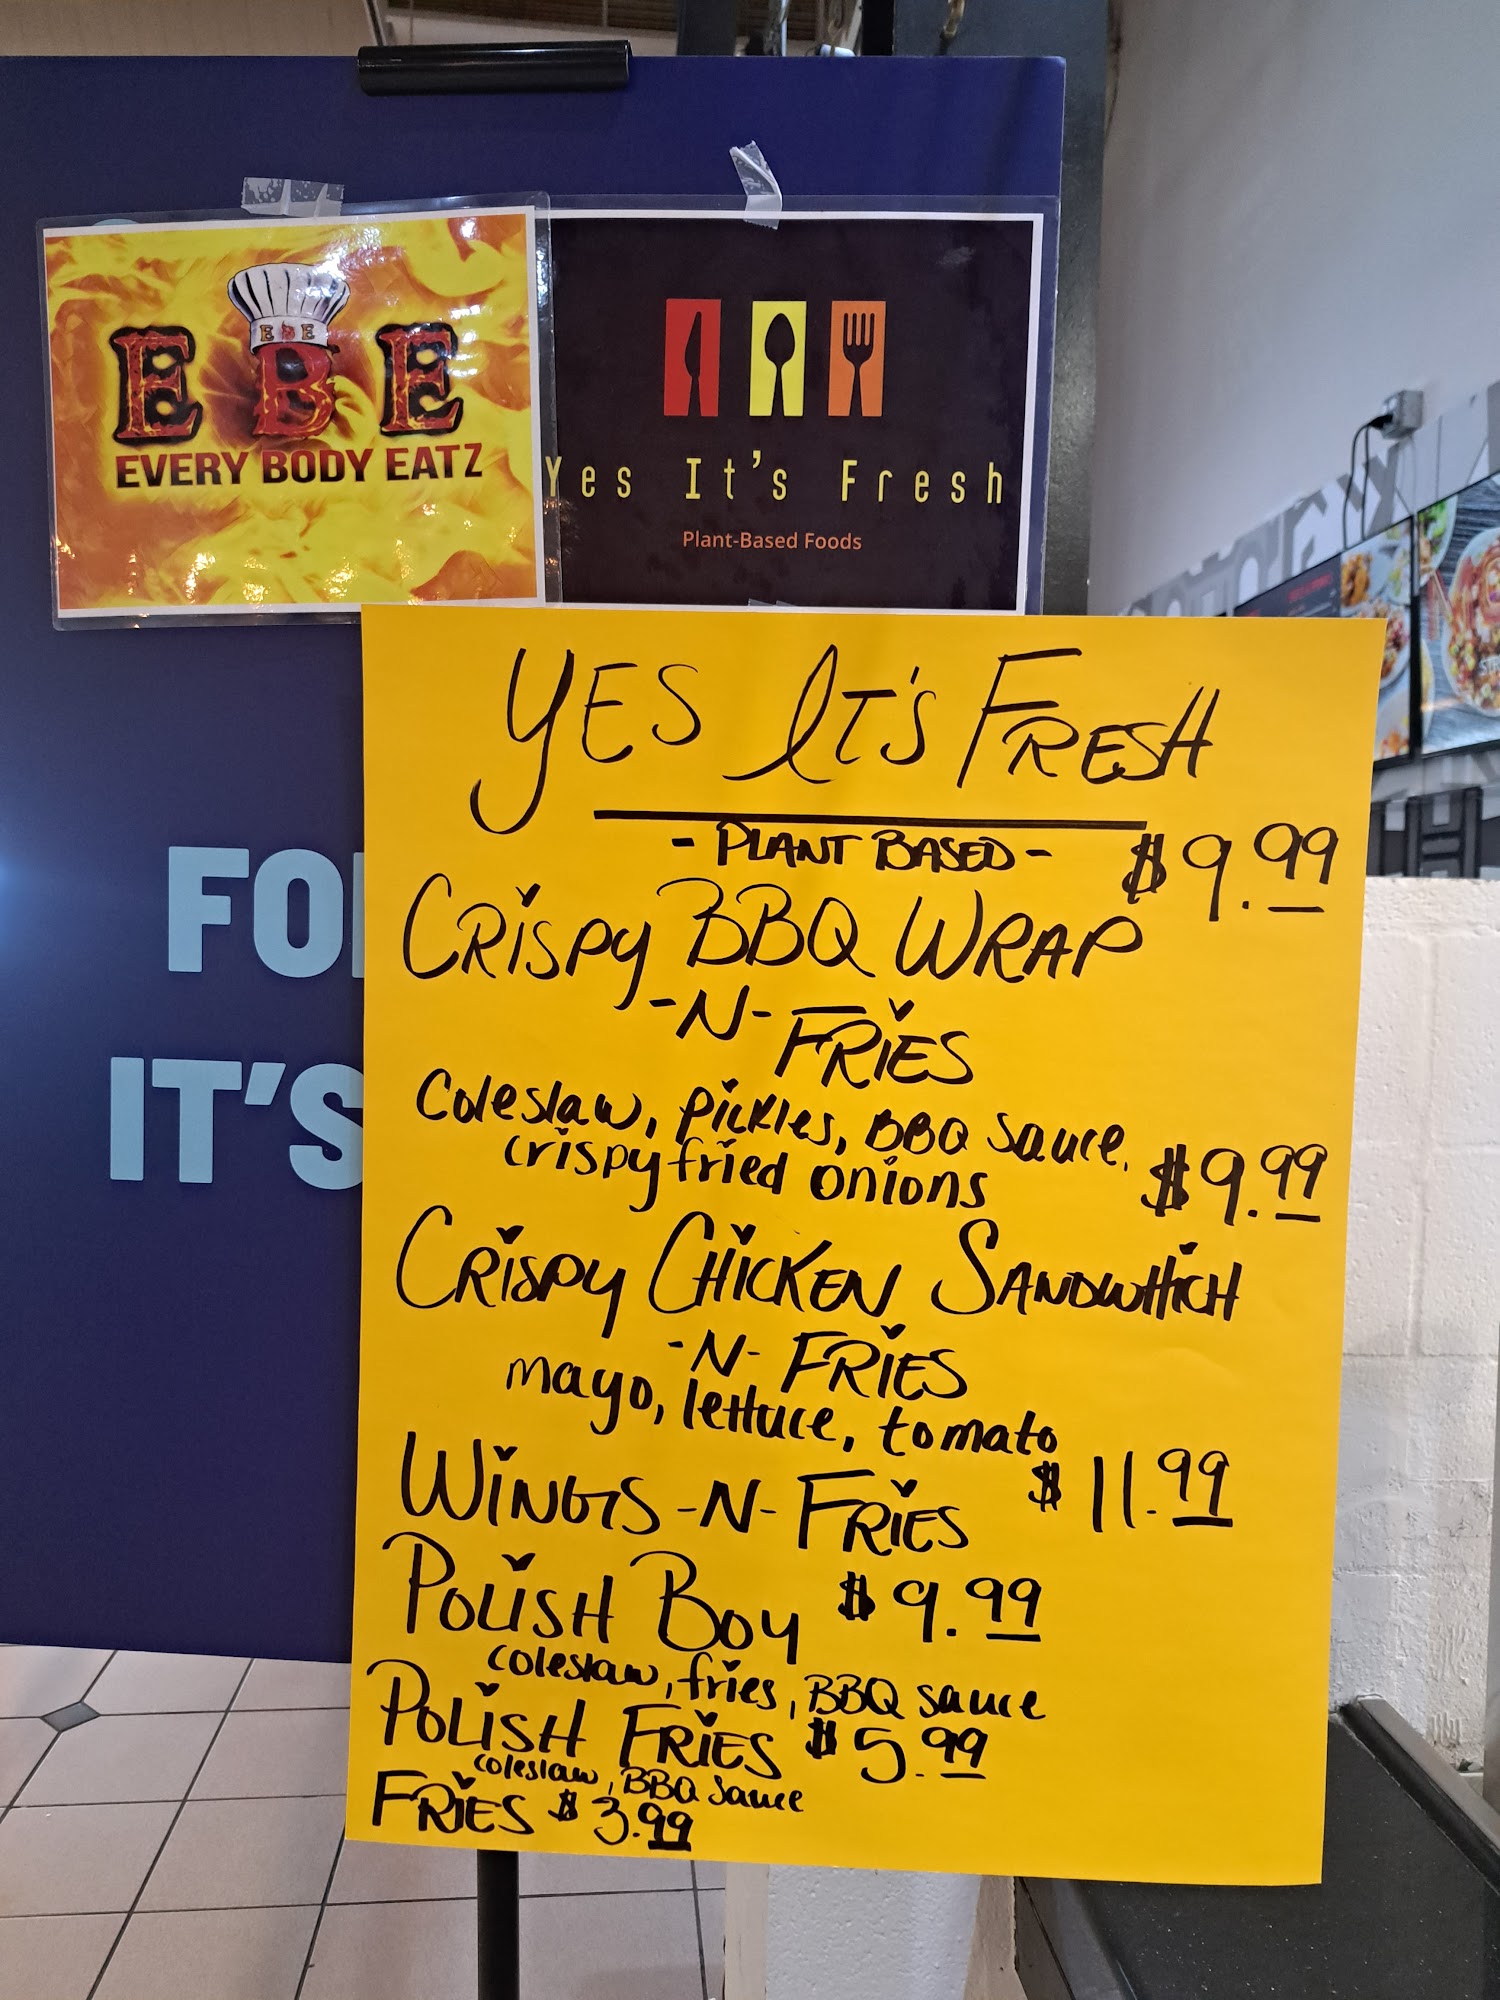 E B E
E B E
EVERY BODY EATZ
Yes It's Fresh
Plant-Based Foods
FO
IT'S
YES IT'S FRESH
- PLANT BASED -
$9.99
CRISPY BBQ WRAP
-N- FRIES
Coleslaw, pickles, BBQ sauce,
crispy fried onions
$9.99
CRISPY CHICKEN SANDWHICH
-N- FRIES
mayo, lettuce, tomato
WINGS -N- FRIES $11.99
POLISH BOY $9.99
coleslaw, fries, BBQ sauce
POLISH FRIES $5.99
coleslaw, BBQ sauce
FRIES $3.99